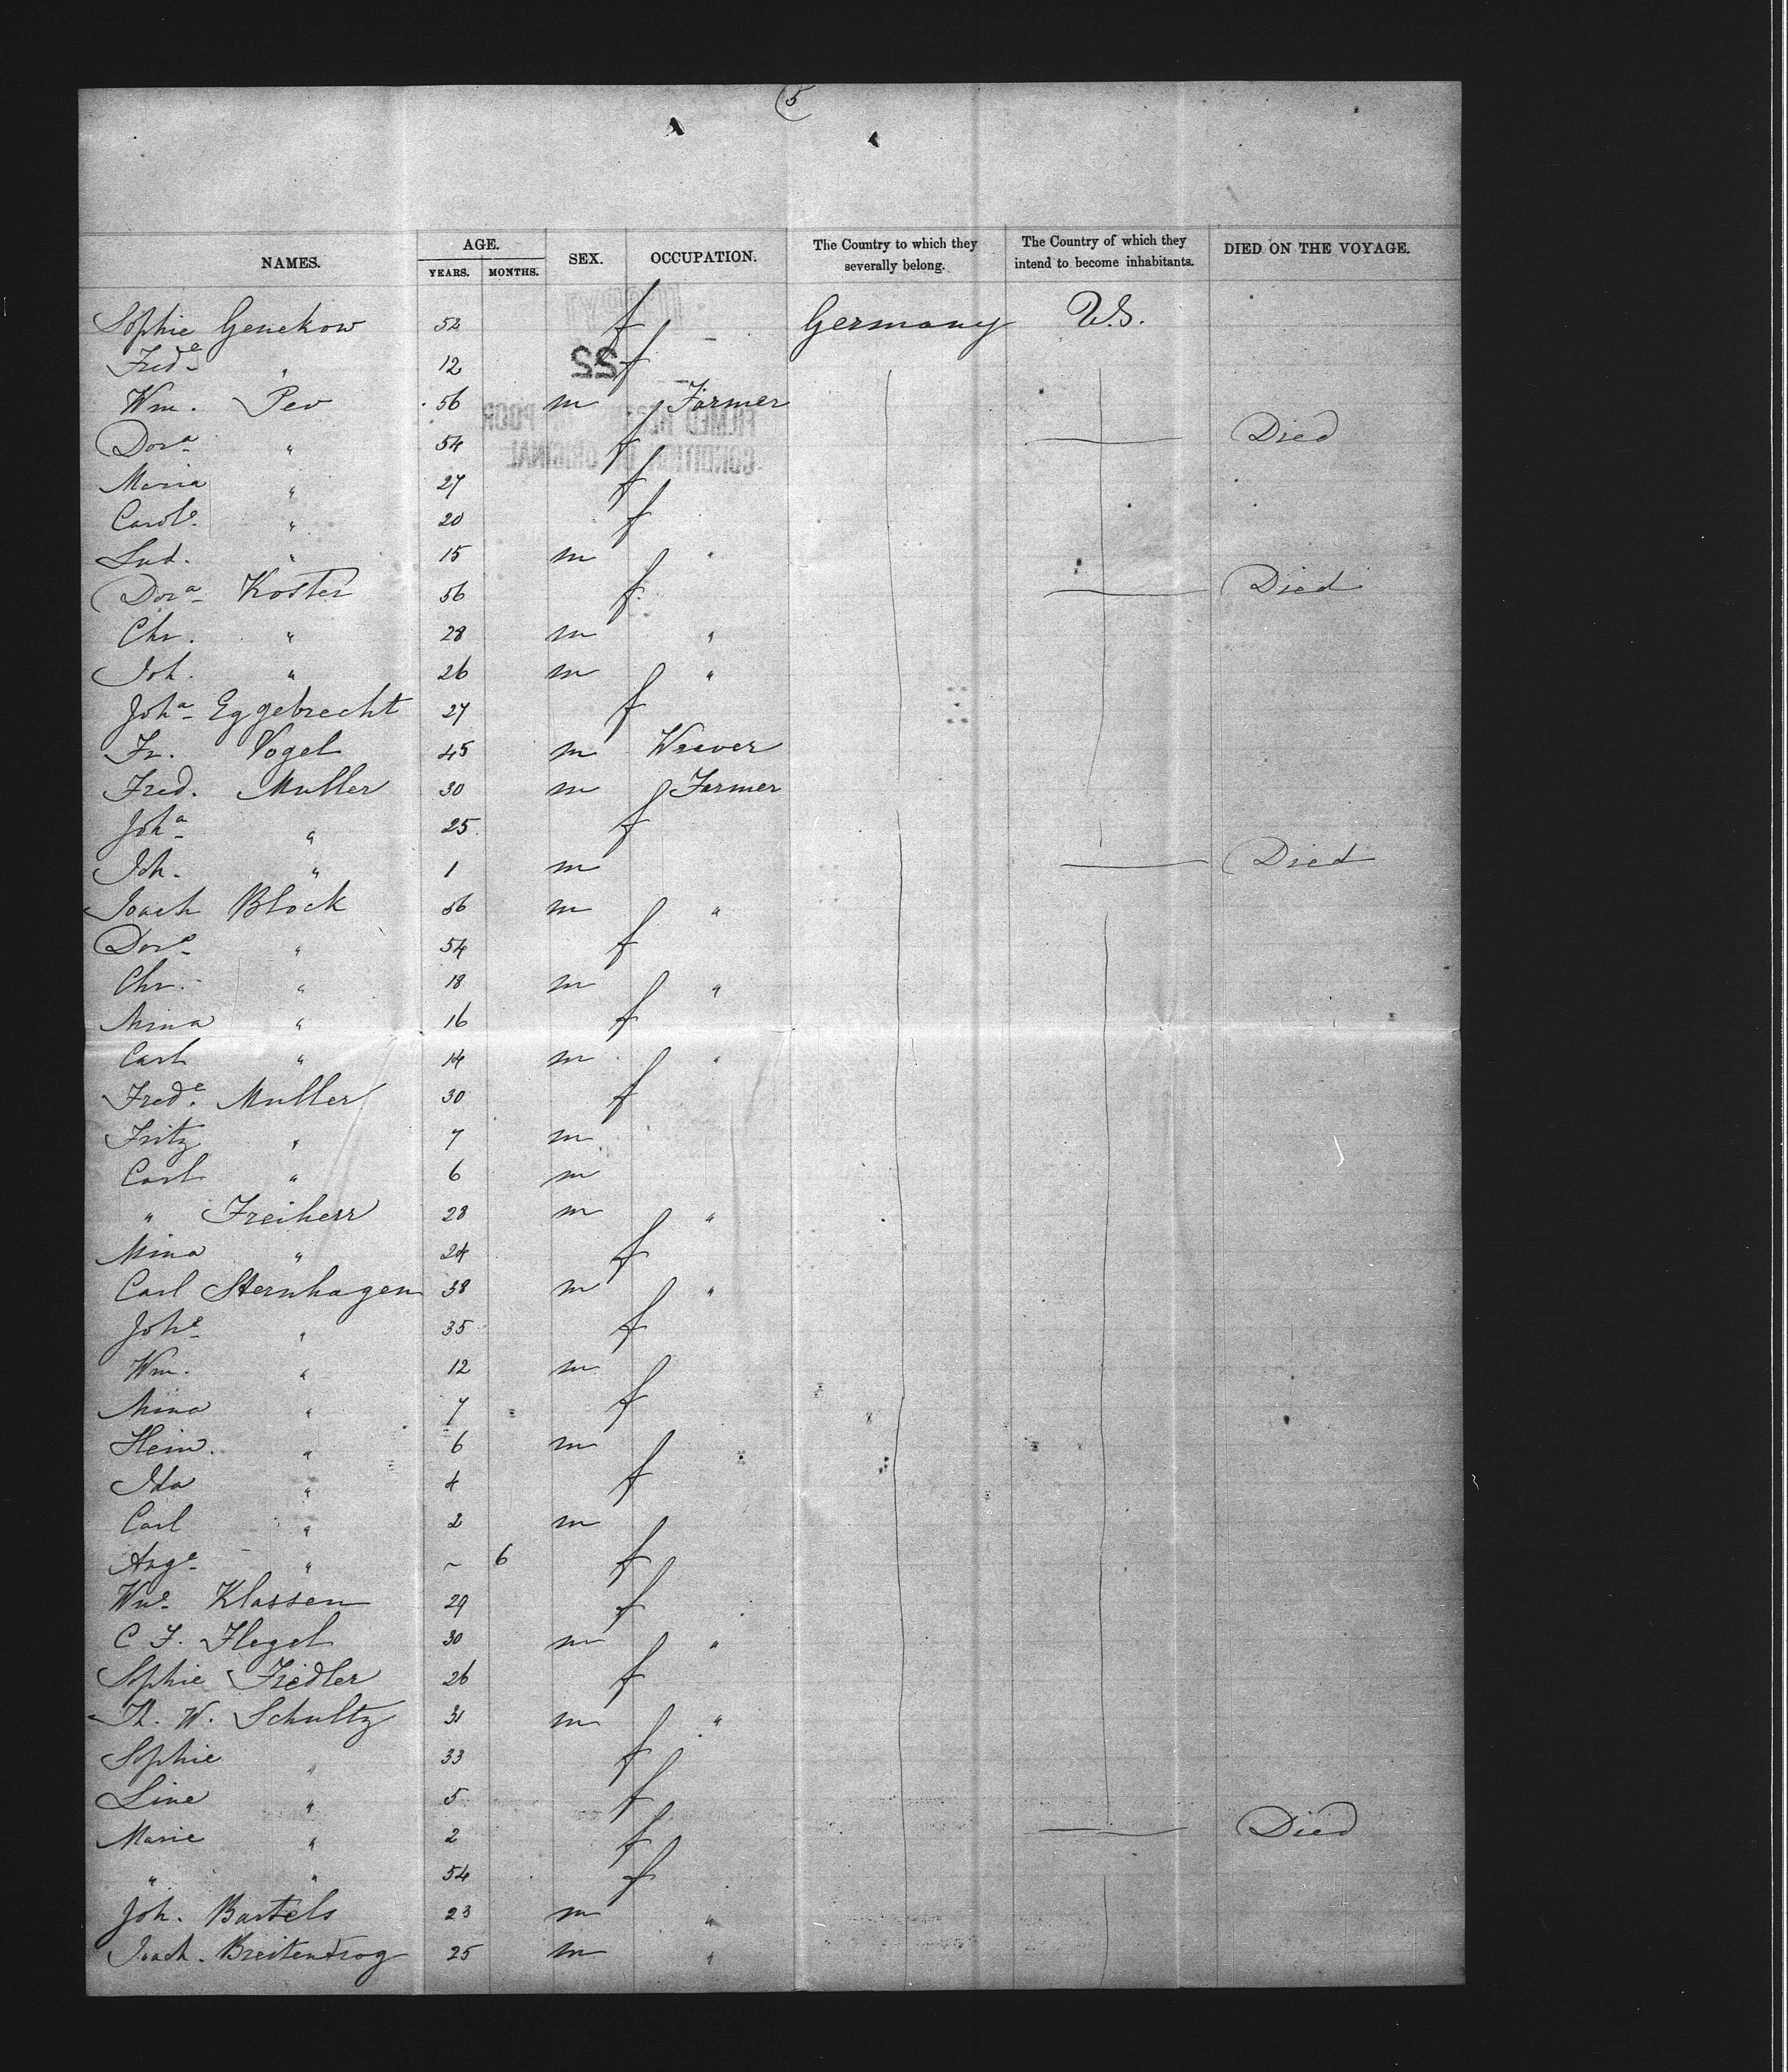 5
NAMES. AGE. YEARS. MONTHS. SEX. OCCUPATION. The Country to which they severally belong. The Country of which they intend to become inhabitants. DIED ON THE VOYAGE.
Sophie Genekow 52 f Germany U.S.
Fredᵉ " 12 f
Wm. Pev 56 m Farmer
Dorᵃ " 54 f Died
Maria " 27 f
Carolᵉ " 20 f
Lud. " 15 m "
Dorᵃ Koster 56 f Died
Chr. " 28 m "
Joh. " 26 m "
Johᵃ Eggebrecht 27 f
Fr. Vogel 45 m Weaver
Fred. Muller 30 m Farmer
Johᵃ " 25 f
Joh. " 1 m Died
Joach Block 56 m "
Dorᵃ " 54 f
Chr. " 18 m "
Mina " 16 f
Carl " 14 m "
Fredᵉ Muller 30 f
Fritz " 7 m
Carl " 6 m
" Freiherr 28 m "
Mina " 24 f
Carl Sternhagen 38 m "
Johᵉ " 35 f
Wm. " 12 m
Mina " 7 f
Hein. " 6 m
Ida " 4 f
Carl " 2 m
Augᵉ " ~ 6 f
Wmᵉ Klassen 29 f
C F. Flegel 30 m "
Sophie Fiedler 26 f
W. Schultz 31 m "
Sophie " 33 f
Line " 5 f
Marie " 2 f Died
" " 54 f
Joh. Bartels 23 m "
Joach. Breitentrog 25 m "
22
FILMED POOR
CONDITION OF ORIGINAL